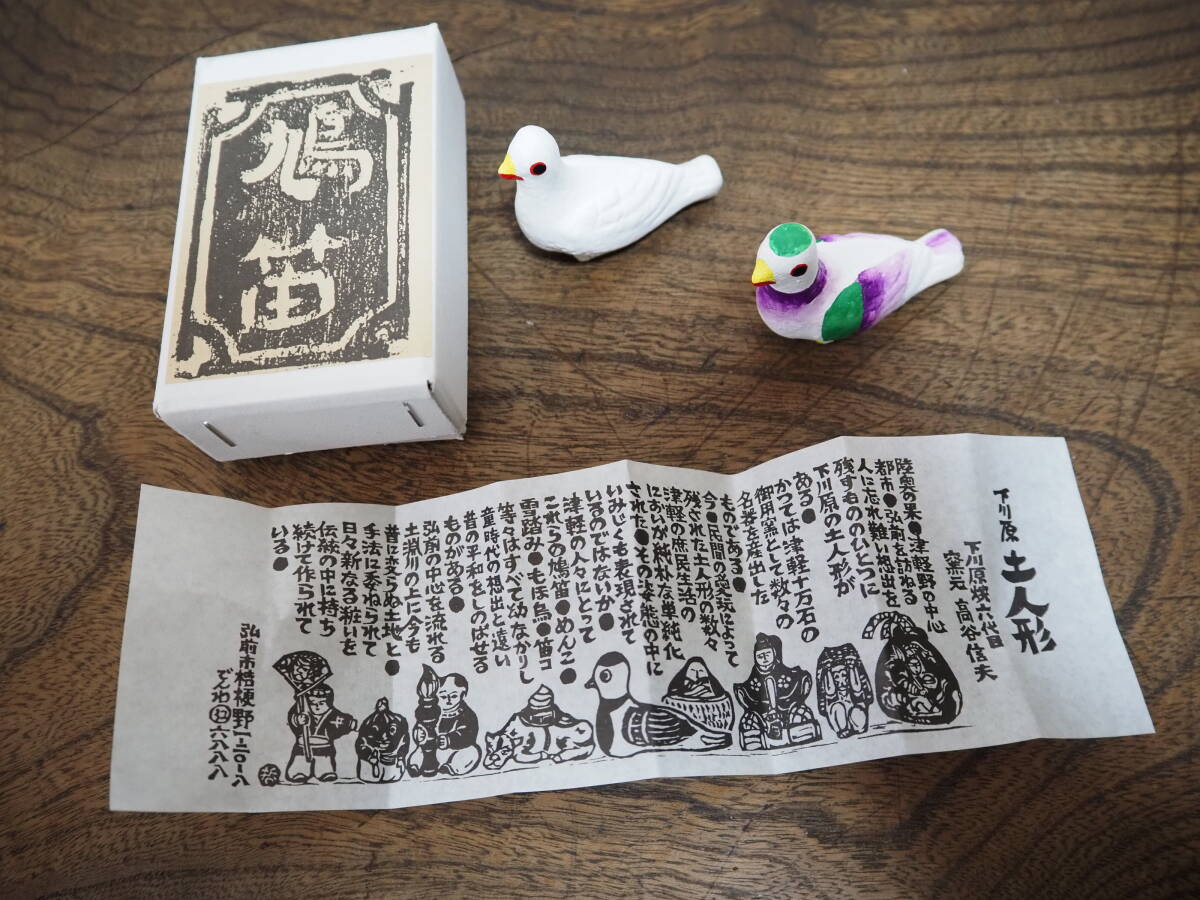 鳩笛
下川原 土人形
下川原焼六代目
窯元 高谷信夫
陸奥の果●津軽野の中心
都市●弘前を訪ねる
人に忘れ難い想出を
残すもののひとつに
下川原の土人形が
ある●
かつては津軽十万石の
御用窯として数々の
名器を産出した
ものである●
今●民間の愛玩によって
残された土人形の数々
津軽の庶民生活の
においが純朴な単純化
された●その姿態の中に
いみじくも表現されて
いるのではないか●
津軽の人々にとって
これらの鳩笛●めんこ●
雪踏み●もほ鳥●笛コ
等々はすべて幼なかりし
童時代の想出と遠い
昔の平和をしのばせる
ものがある●
弘前の中心を流れる
土淵川の上に今も
昔に変らぬ土地と●
手法に委ねられて
日々新なる粧いを
伝統の中に持ち
続けて作られて
いる●
弘前市桔梗野一ー二〇ー八
でんわ
六八八八